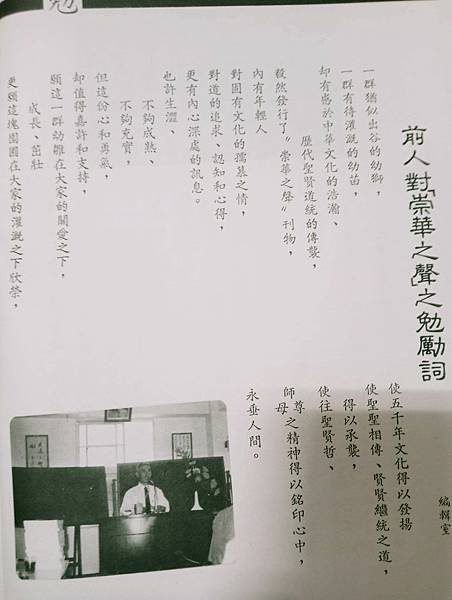 勉
前人對「崇華之聲」之勉勵詞
編輯室
一群猶似出谷的幼獅，
一群有待灌溉的幼苗，
卻有感於中華文化的浩瀚、
歷代聖賢道統的傳襲，
毅然發行了“崇華之聲”刊物，
內有年輕人
對固有文化的孺慕之情，
對道的追求、認知和心得，
更有內心深處的訊息。
也許生澀、
不夠成熟、
不夠充實，
但這份心和勇氣，
卻值得嘉許和支持，
願這一群幼雛在大家的關愛之下，
成長、茁壯
更願這塊園圃在大家的灌溉之下欣榮，
使五千年文化得以發揚
使聖聖相傳、賢賢繼統之道，
得以承襲，
使往聖賢哲、
師尊
師母之精神得以銘印心中，
永垂人間。